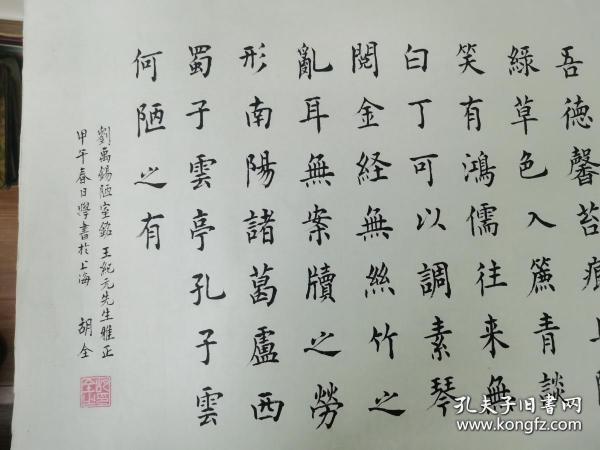 吾德馨苔痕上
綠草色入簾青談
笑有鴻儒往来無
白丁可以調素琴
閱金経無絲竹之
亂耳無案牘之勞
形南陽諸葛廬西
蜀子雲亭孔子雲
何陋之有
劉禹錫陋室銘 王紀元先生雅正
甲午春日學書於上海 胡全
孔夫子旧书网
www.kongfz.com